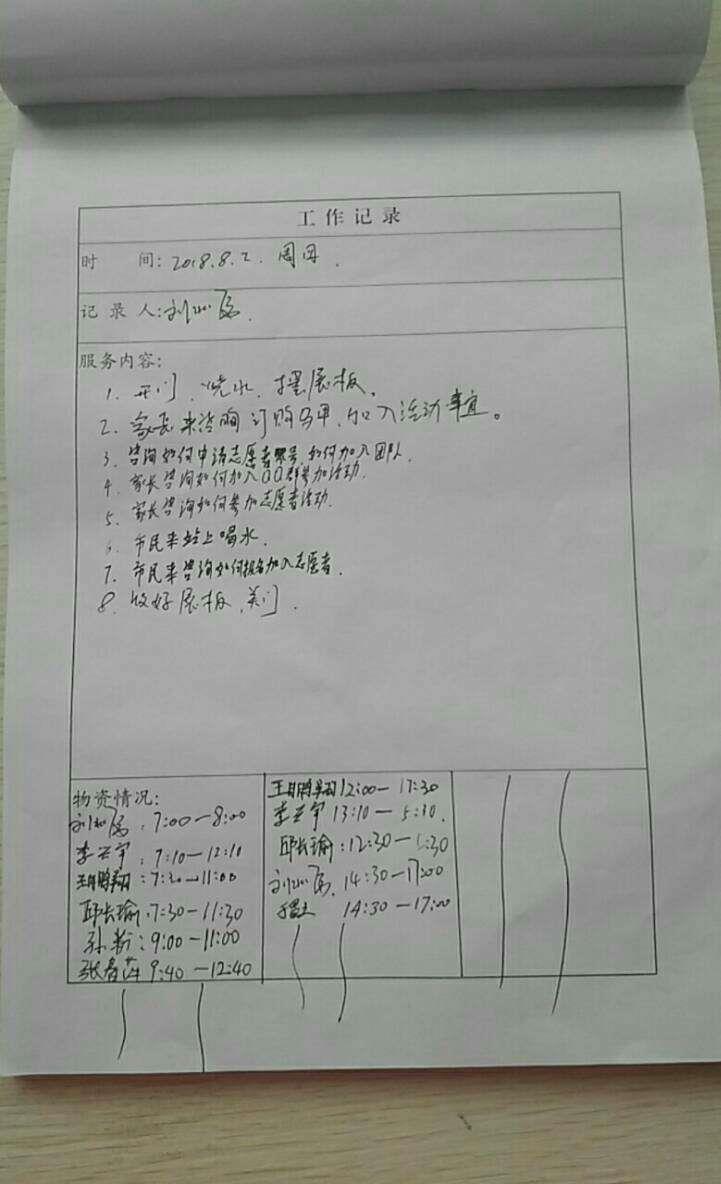 工作记录
时 间: 2018.8.2. 周四.
记录人: 刘
服务内容:
1. 开门、烧水、摆展板。
2. 家长来咨询订购马甲,加入活动事宜。
3. 咨询如何申请志愿者账号,如何加入团队.
4. 家长咨询如何加入QQ群参加活动.
5. 家长咨询如何参加志愿者活动.
6. 市民来站上喝水.
7. 市民来咨询如何报名加入志愿者.
8. 收好展板,关门.
物资情况:
刘 : 7:00—8:00
李 宇: 7:10—12:10
王 鹏翔: 7:30—11:00
邱长瑜: 7:30—11:30
孙 : 9:00—11:00
张春萍 9:40—12:40
王 鹏翔 12:00—17:30
李 宇 13:10—5:30.
邱长瑜: 12:30—5:30
刘 . 14:30—17:00
14:30—17:00